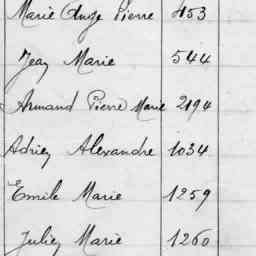 Marie Ange Pierre 453
Jean Marie 544
Armand Pierre Marie 2194
Adrien Alexandre 1034
Emile Marie 1259
Julien Marie 1260